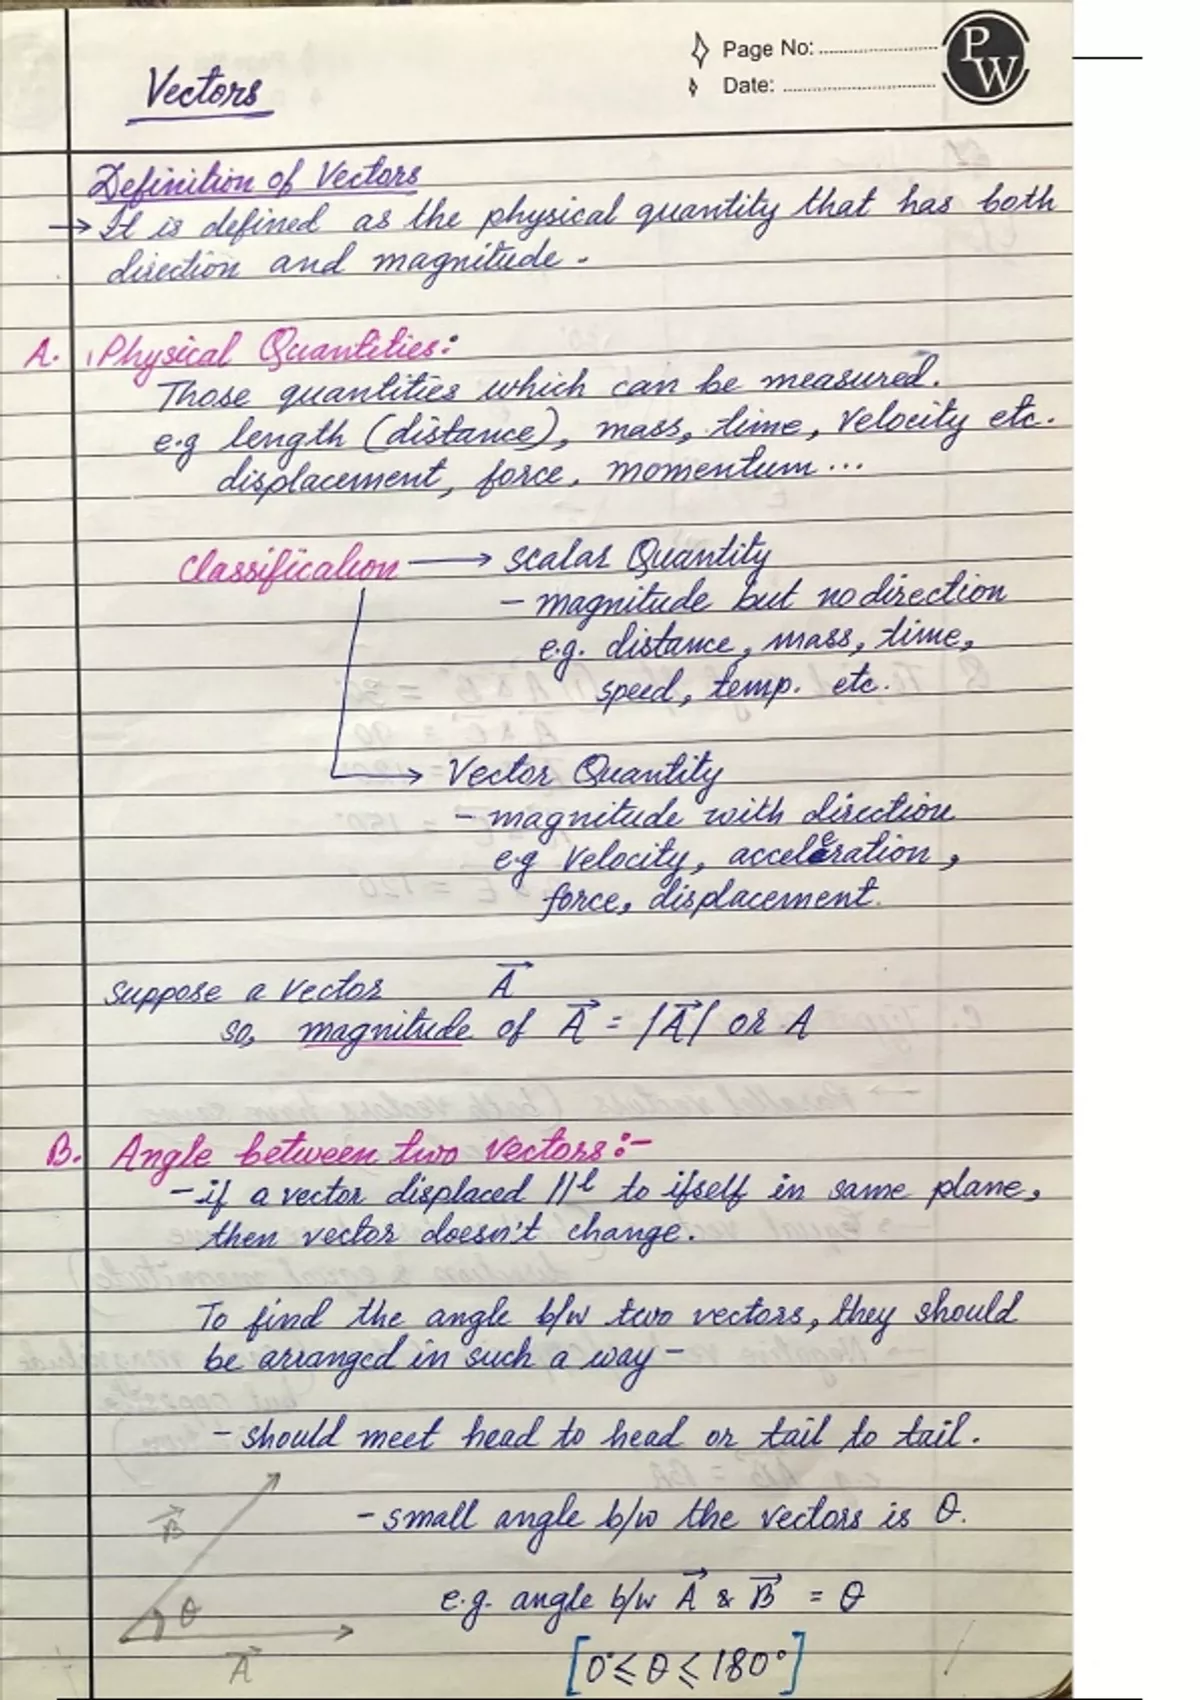 Page No:
PW
Date:
Vectors
Definition of Vectors
→ It is defined as the physical quantity that has both
direction and magnitude.
A. Physical Quantities:
Those quantities which can be measured.
e.g length (distance), mass, time, velocity etc.
displacement, force, momentum...
Classification → scalar Quantity
- magnitude but no direction
e.g. distance, mass, time,
speed, temp. etc.
→ Vector Quantity
- magnitude with direction
e.g velocity, acceleration,
force, displacement.
suppose a vector A⃗
so, magnitude of A⃗ = |A⃗| or A
B. Angle between two vectors:-
- if a vector displaced ||l to itself in same plane,
then vector doesn't change.
To find the angle b/w two vectors, they should
be arranged in such a way -
- should meet head to head or tail to tail.
B⃗
- small angle b/w the vectors is θ.
θ
e.g. angle b/w A⃗ & B⃗ = θ
A⃗
[0°≤ θ ≤ 180°]